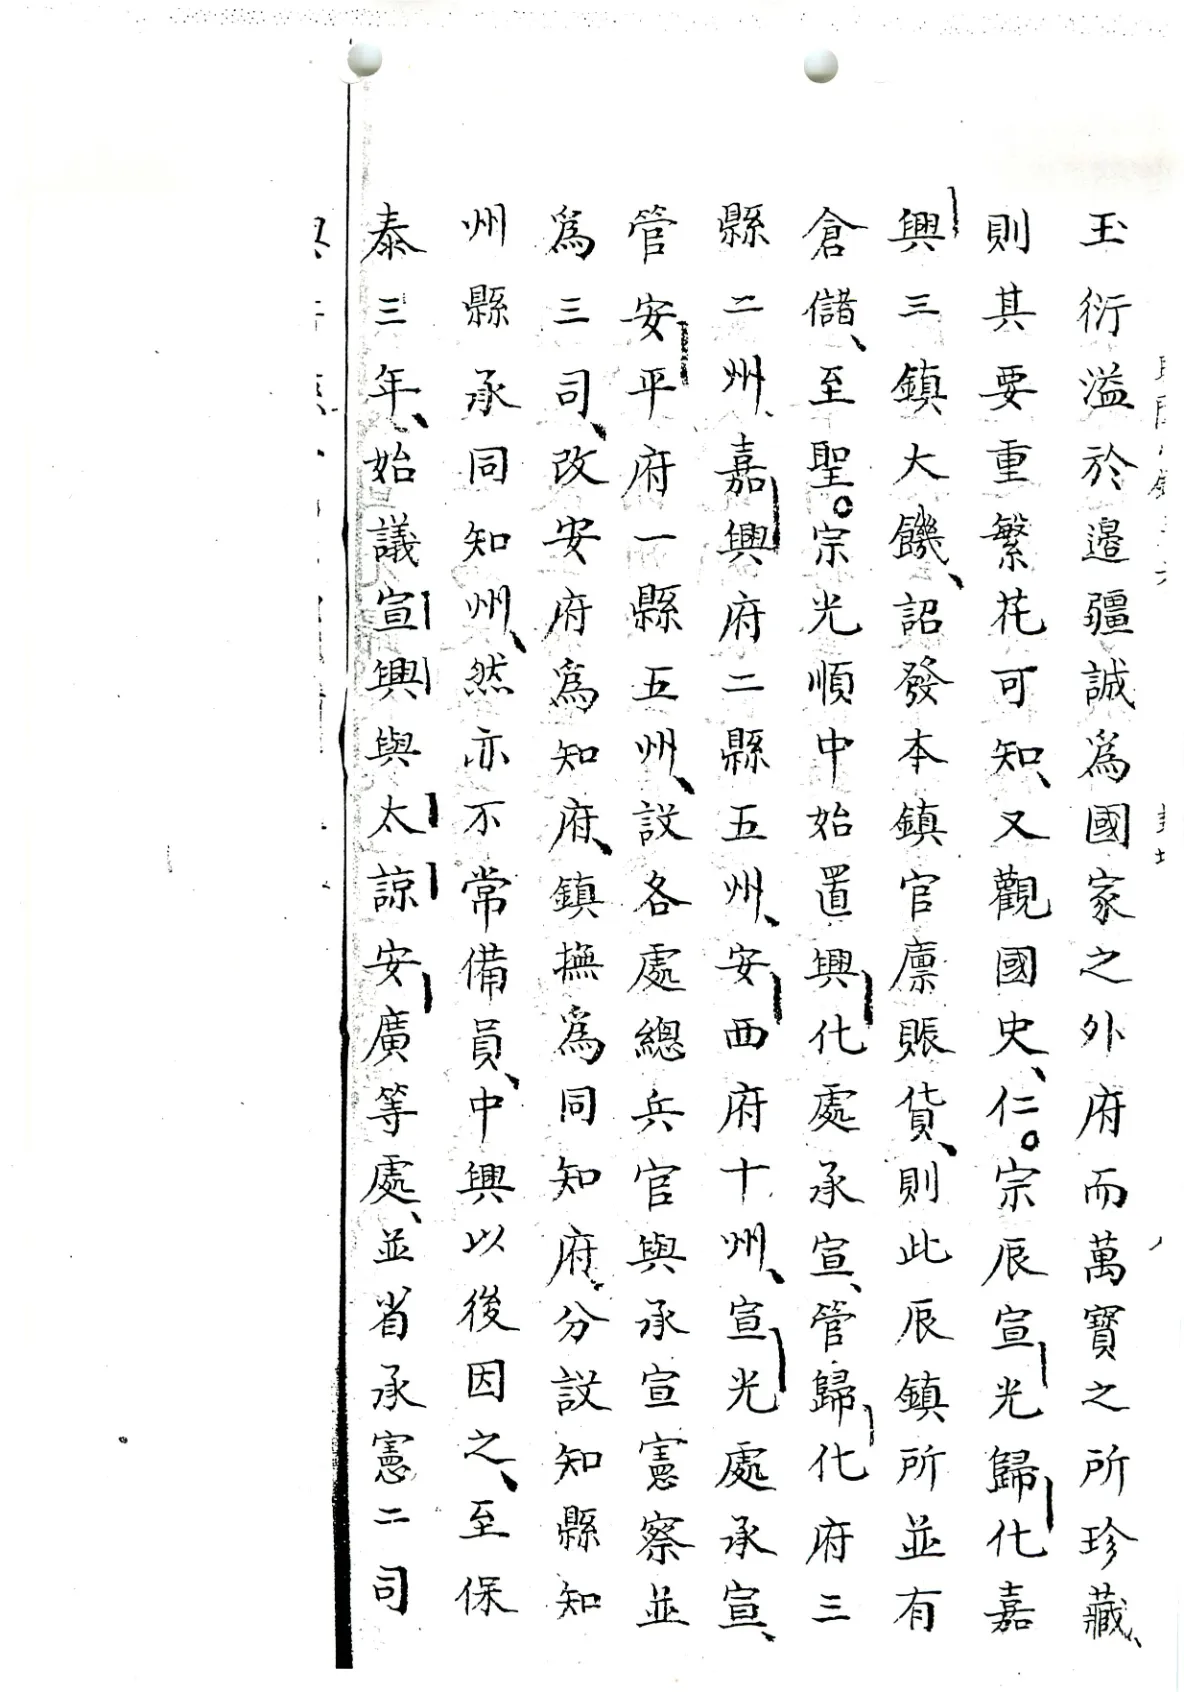 玉衍溢於邉疆誠爲國家之外府而萬寶之所珍藏、
則其要重繁花可知、又觀國史、仁宗辰宣光歸化嘉
興三鎮大饑、詔發本鎮官廪賬貨、則此辰鎮所並有
倉儲、至聖宗光順中始置興化處承宣、管歸化府三
縣二州、嘉興府二縣五州、安西府十州、宣光處承宣、
管安平府一縣五州、設各處總兵官與承宣憲察並
爲三司、改安府爲知府、鎮撫爲同知府、分設知縣知
州縣承同知州、然亦不常備員、中興以後因之、至保
泰三年、始議宣興與太諒安廣等處、並省承憲二司